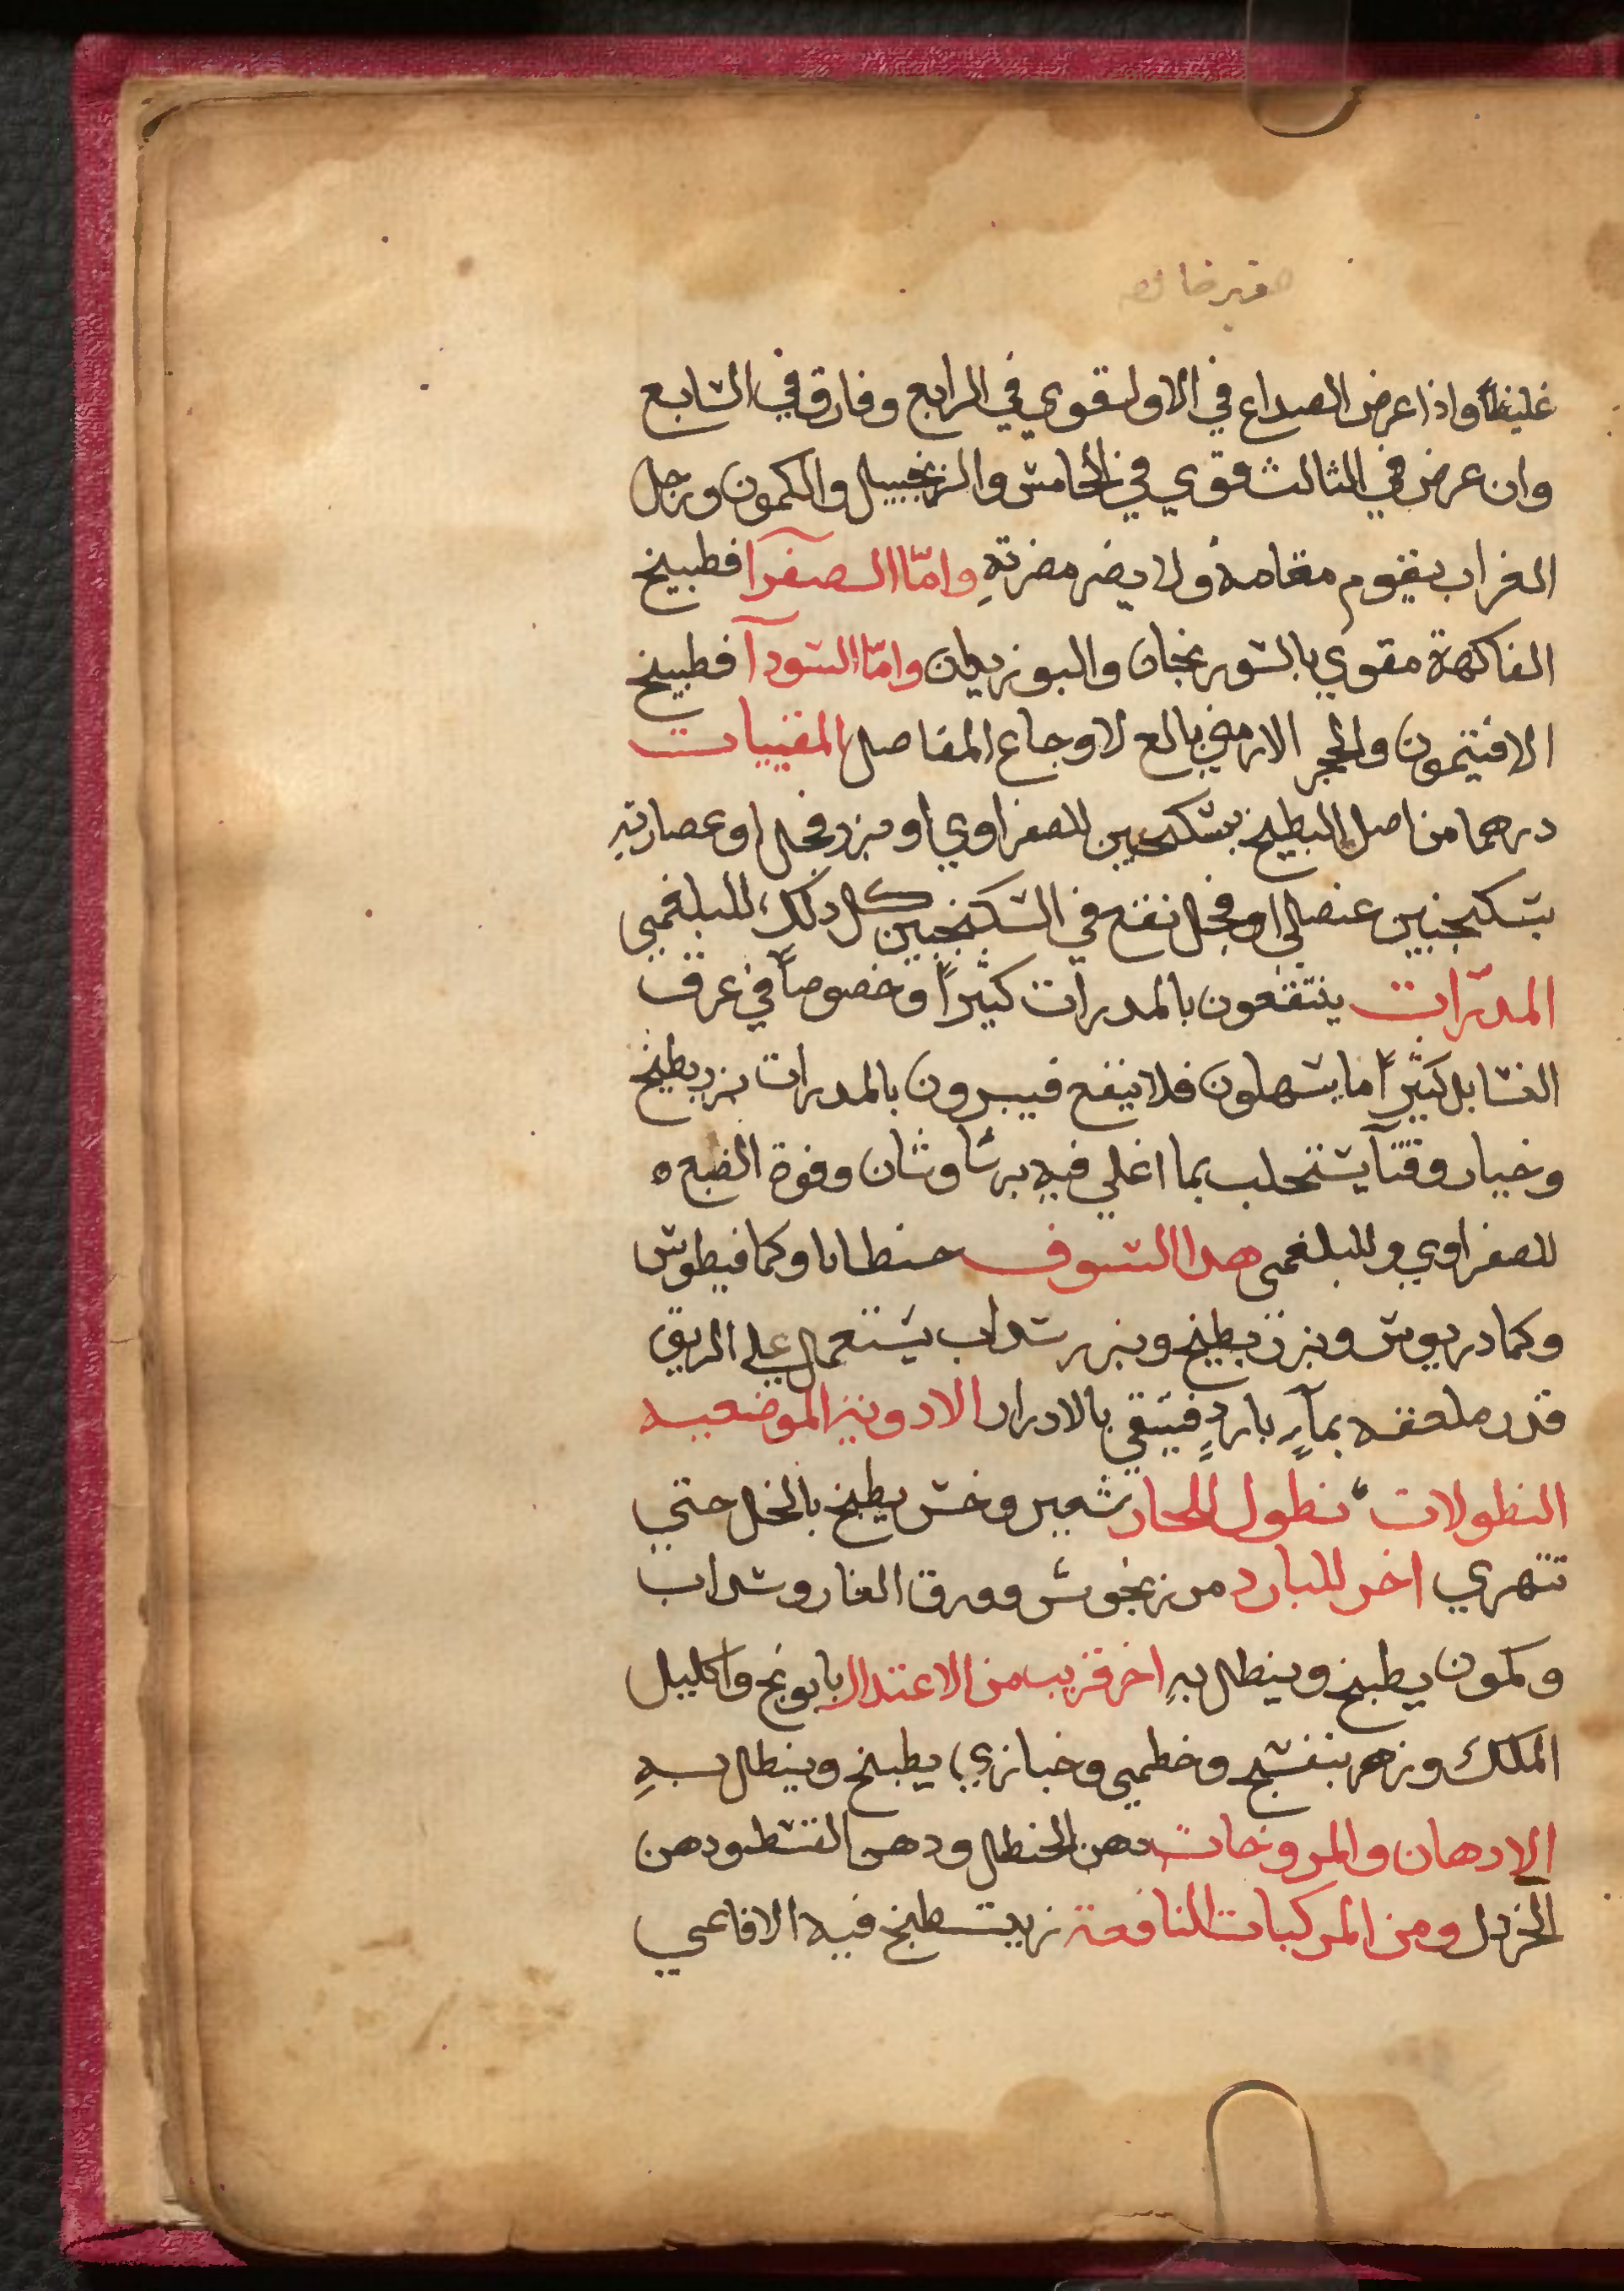 غليظاً واذا عرض الصداع في الاول قوي في الرابع وفارق في السابع
وان عرض في الثالث قوي في الخامس والزنجبيل والكمون ورجل
الغراب يقوم مقامه ولا يضر مضرتهِ وامّا الصفرآ فطبيخ
الفاكهة مقوي بالسورنجان والبوزيدان وامّا السودآ فطبيخ
الافتيمون والحجر الارمني بالغ لاوجاع المفاصل المقييات
درهما من اصل البطيخ بسكنجبين للصفراوي او بزر فجل او عصارته
بسكنجبين عنصلي او فجل نقع في السكنجبين كل ذلك للبلغمي
المدرّات ينتفعون بالمدرات كثيراً وخصوصاً في عرق
النسا بل كثيراً ما يسهلون فلا ينفع فيبرون بالمدرات بزر بطيخ
وخيار وقثآ يستحلب بما اغلي فيه برشاوشان وفوة الصبغ ه
للصفراوي وللبلغمي هذا السفوف جنطايا وكمافيطوس
وكمادريوس وبزر بطيخ وبزر سداب يستعمل علي الريق
قدر ملعقه بمآءٍ باردٍ فينقي بالادرار الادويه الموضعيه
النطولات نطول للحار شعير وخس يطبخ بالخل حتي
تتهري اخر للبارد مرزنجوش وورق الغار وسداب
وكمون يطبخ وينطل بهِ اخر قريب من الاعتدال بابونج واكليل
الملك وزهر بنفسج وخطمي وخبازي يطبخ وينطل بهِ
الادهان والمروخات دهن الحنظل ودهن القسط ودهن
الخردل ومن المركبات النافعة زيت طبخ فيه الافاعي